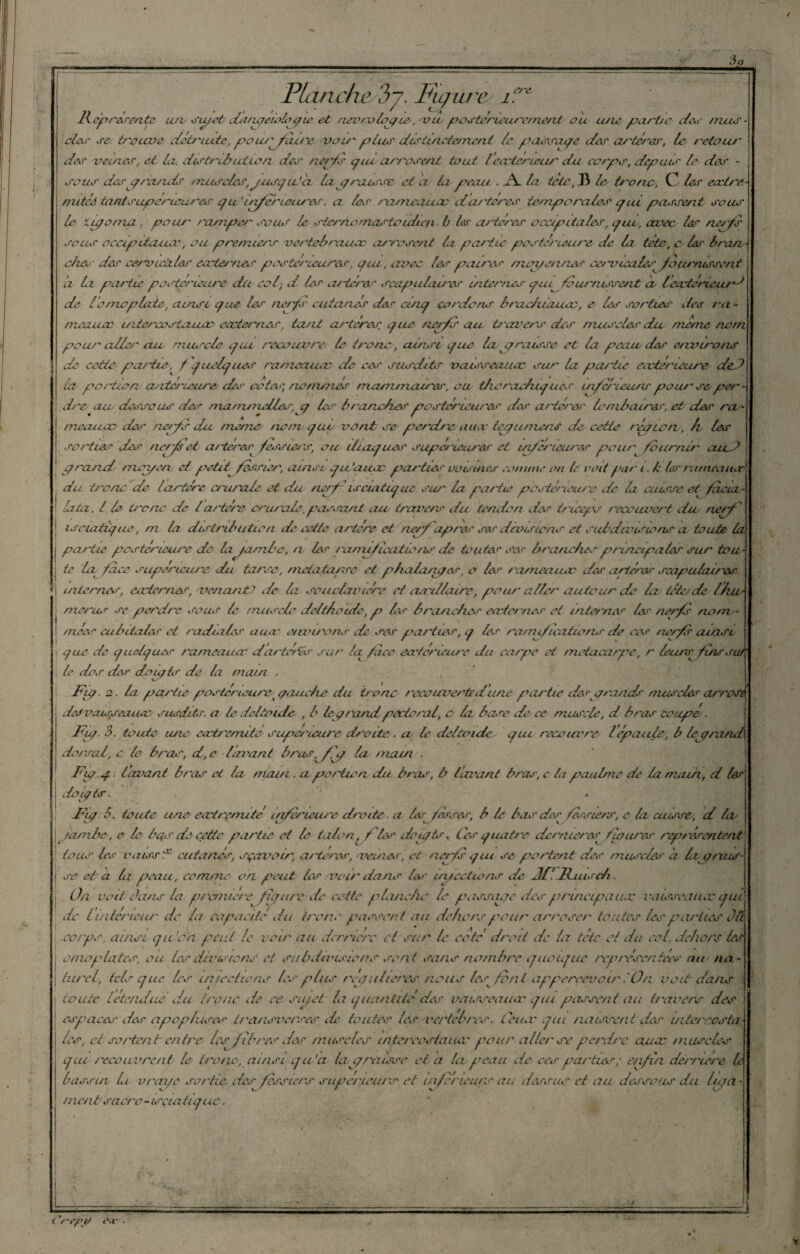 39
Planche 37. Figure 1.ere
Represente un sujet d'angeiologie et nevrologie, vu posterieurement ou une partie des mus-
cles se trouve detruite, pour faire voir plus distinctement le passage des arteres, le retour
des veines, et la distribution des nerfs qui arrosent tout l'exterieur du corps, depuis le des -
sous des grands muscles, jusqu'à la graisse et a la peau . A la tête, B le tronc, C les extre-
mités tant superieures qu'inferieures. a les rameaux d'artéres temporales qui passent sous
le zigoma, pour ramper sous le sternomastoidien. b les artéres occipitales, qui, avec les nerfs
sous occipitaux, ou premiers vertebraux arrosent la partie posterieure de la tête, c les bran-
ches des cervicales externes posterieures, qui, avec les paires moyennes cervicales fournissent
à la partie posterieure du col; d les artéres scapulaires internes qui fournissent à l'exterieur
de l'omoplate, ainsi que les nerfs cutanés des cinq cordons brachiaux, e les sorties des ra-
meaux intercostaux externes, tant artéres que nerfs au travers des muscles du même nom
pour aller au muscle qui recouvre le tronc, ainsi que la graisse et la peau des environs
de cette partie, f quelques rameaux de ces susdits vaisseaux sur la partie exterieure de
la portion anterieure des côtes, nommés mammaires, ou thorachiques inferieurs pour se per-
dre au dessous des mammelles, g les branches posterieures des artéres lombaires, et des ra-
meaux des nerfs du même nom qui vont se perdre aux tegumens de cette région, h les
sorties des nerfs et artéres fessiers, ou iliaques superieures et inferieures pour fournir au
grand moyen et petit fessier, ainsi qu'aux parties voisines comme on le voit par i. k les rameaux
du tronc de l'artére crurale et du nerf isciatique sur la partie posterieure de la cuisse et facia-
lata, l le tronc de l'artére crurale, passant au travers du tendon des triceps recouvert du nerf
isciatique, m la distribution de cette artére et nerf après ses divisions et subdivisions a toute la
partie posterieure de la jambe, n les ramifications de toutes ses branches principales sur tou-
te la face superieure du tarse, metatarse et phalanges, o les rameaux des artéres scapulaires
internes, externes, venant de la souclaviére et axillaire, pour aller autour de la tête de l'hu-
merus se perdre sous le muscle delthoide, p les branches externes et internes les nerfs nom-
mées cubitales et radiales aux environs de ses parties, q les ramifications de ces nerfs ainsi
que de quelques rameaux d'artéres sur la face exterieure du carpe et metacarpe, r leurs fins sur
le dos des doigts de la main .
Fig. 2. la partie posterieure gauche du tronc recouverte d'une partie des grands muscles arrosé
des vaisseaux susdits. a le deltoide , b le grand pectoral, c la base de ce muscle, d bras coupé .
Fig. 3. toute une extremité superieure droite. a le deltoide qui recouvre l'épaule, b le grand
dorsal, c le bras, d, e l'avant bras, f g la main .
Fig 4. l'avant bras et la main . a portion du bras, b l'avant bras, c la paulme de la main, d les
doigts .
Fig. 5. toute une extremité inferieure droite. a les fesses, b le bas des fessiers, c la cuisse, d la
jambe, e le bas de cette partie et le talon, f les doigts. Ces quatre dernieres figures représentent
tous les vaiss.x cutanés, sçavoir, artéres, veines, et nerfs qui se portent des muscles à la grais-
se et à la peau, comme on peut les voir dans les injections de M.r Ruisch.
On voit dans la premiére figure de cette planche le passage des principaux vaisseaux qui
de l'intérieur de la capacité du tronc passent au dehors pour arroser toutes les parties du
corps, ainsi qu'on peut le voir au derriére et sur le côté droit de la tête et du col, dehors les
omoplates, ou les divisions et subdivisions sont sans nombre quoique représentées au na-
turel, tels que les injections les plus régulieres nous les font appercevoir. On voit dans
toute l'étendue du tronc de ce sujet la quantité des vaisseaux qui passent au travers des
espaces des apophises transverses de toutes les vertébres. Ceux qui naissent des intercosta-
les, et sortent entre les fibres des muscles intercostaux pour aller se perdre aux muscles
qui recouvrent le tronc, ainsi qu'a la graisse et a la peau de ces parties; enfin derriere le
bassin la vraye sortie des fessiers superieurs et inferieurs au dessus et au dessous du liga-
ment sacro-isciatique.
Crepy ex .